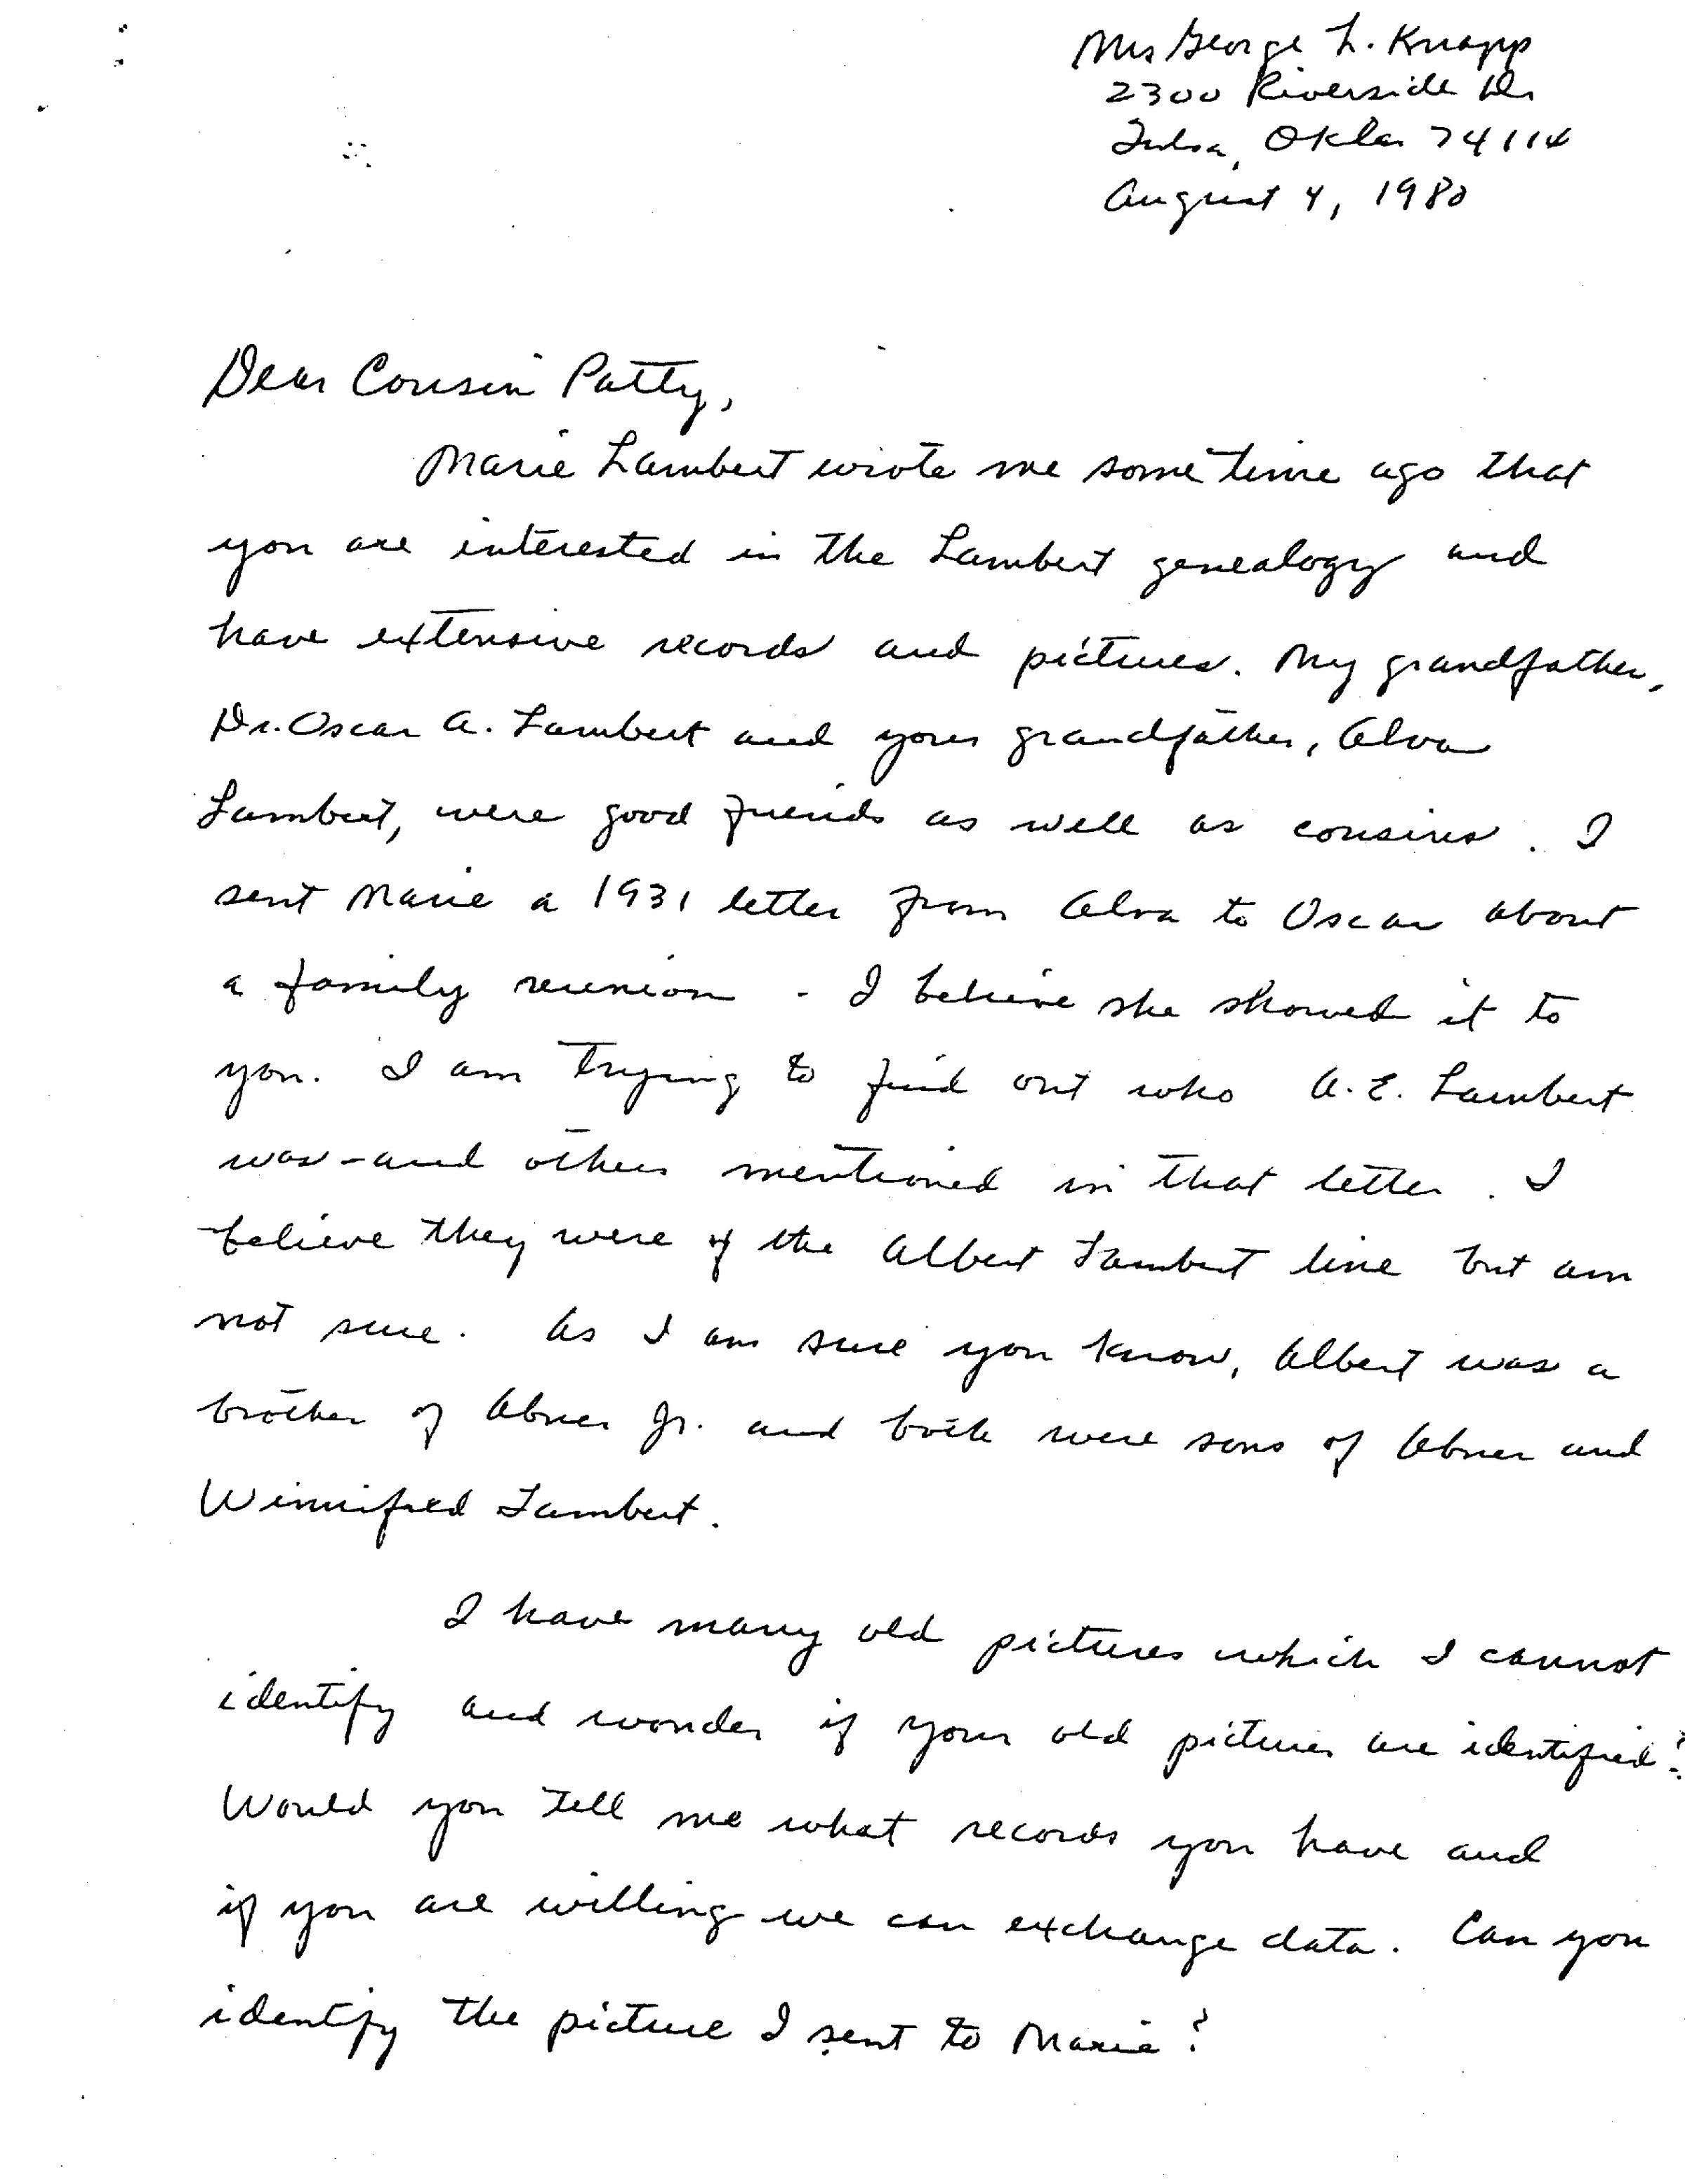 Mrs George L. Knapp
2300 Riverside Dr
Tulsa, Okla 74114
August 4, 1980
Dear Cousin Patty,
Marie Lambert wrote me some time ago that
you are interested in the Lambert genealogy and
have extensive records and pictures. My grandfather,
Dr. Oscar A. Lambert and your grandfather, Alva
Lambert, were good friends as well as cousins. I
sent Marie a 1931 letter from Alva to Oscar about
a family reunion - I believe she showed it to
you. I am trying to find out who A.E. Lambert
was - and others mentioned in that letter. I
believe they were of the Albert Lambert line but am
not sure. As I am sure you know, Albert was a
brother of Abner Jr. and both were sons of Abner and
Winnifred Lambert.
I have many old pictures which I cannot
identify and wonder if your old pictures are identified?
Would you tell me what records you have and
if you are willing we can exchange data. Can you
identify the picture I sent to Marie?